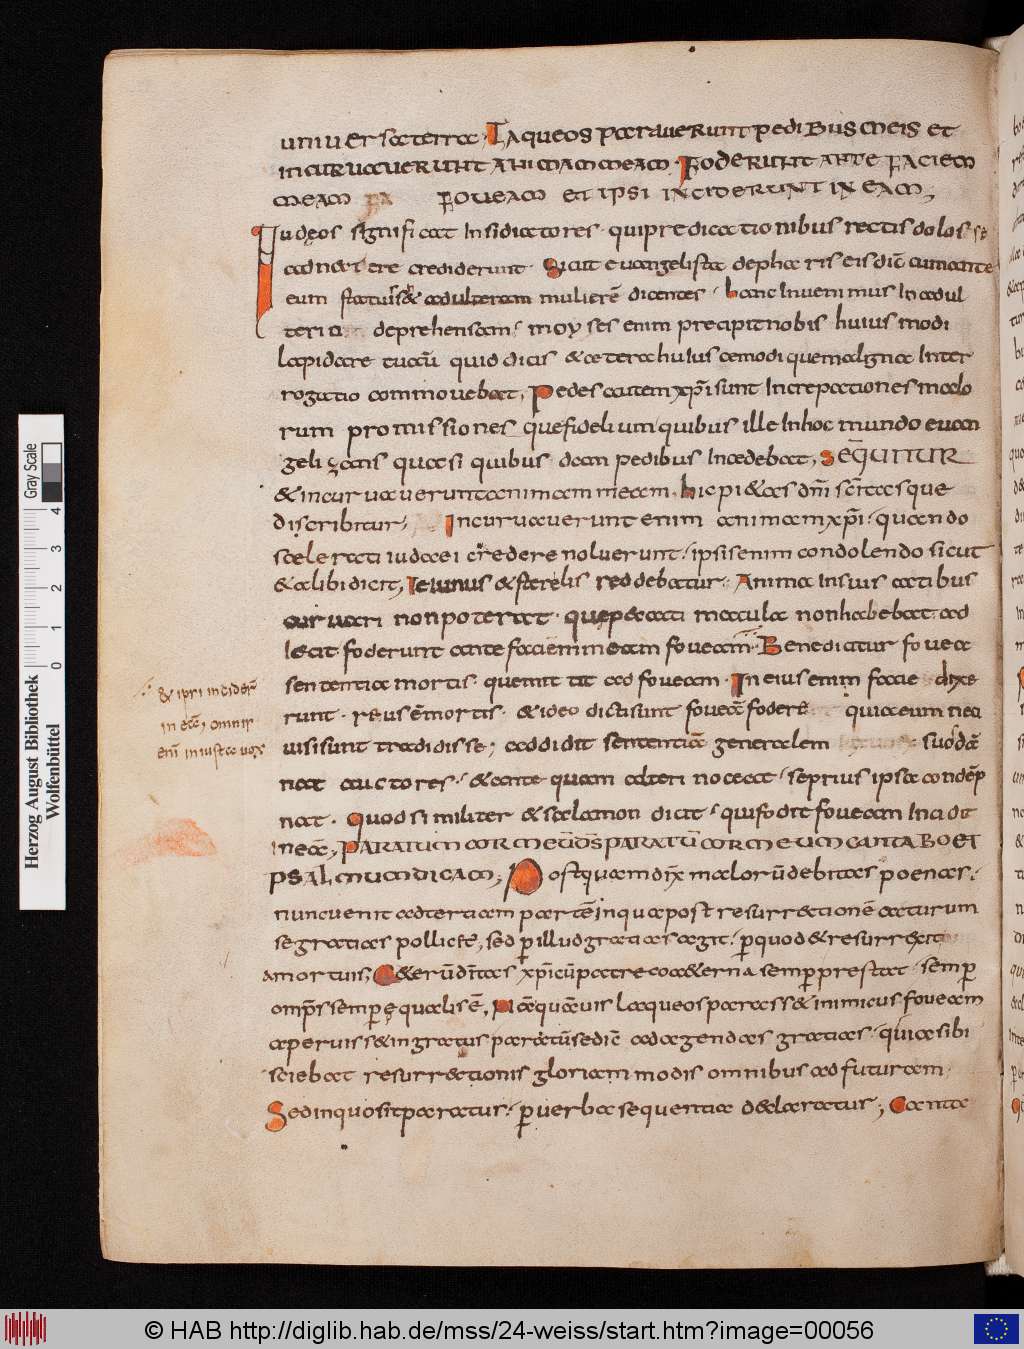 uniuersae terrae. Laqueos parauerunt pedibus meis et
incuruauerunt animam meam. Foderunt ante faciem
meam foueam et ipsi inciderunt in eam,
Iudęos significat Insidiatores. qui predicationibus rectis dolos se
crediderunt. Sicut euangelista de phariseis dic̄ cum ante
eum adulteram mulierē dicentes. hanc Inuenimus In adul
terio deprehensam. moyses enim precipit nobis huiusmodi
lapidare tu aū quid dicis & cetera huiuscemodi que maligna Inter
rogatio commouebat, Pedes autem xp̄i sunt Increpationes malo
rum promissiones que fidelium quibus ille In hoc mundo euan
gelizans quasi quibusdam pedibus Incedebat, Sequitur
& incuruauerunt animam meam. hic pi&as dn̄i sc̄itasque
discribitur; Incuruauerunt enim animam xp̄i. quando
scelerati iudaei credere noluerunt. ipsis enim condolendo sicut
& alibi dicit, Ieiunus & flebilis reddebatur. Anima In suis actibus
curuari non poterat. quę peccati macula non habebat. ad
iecit foderunt ante faciem meam foueam. Benedicitur fouea
sententia mortis. que mittit ad foueam. In eius enim facie dixe
runt. reus ē mortis. & ideo dicti sunt foueā fodere quia eum neci
uisi sunt tradidisse; addidit sententiā generalem suos dā
nat auctores. & ante quam alteri noceat. se prius ipsa condēp
nat. Quod similiter & salamon dicit. qui fodit foueam Incidit
in eā, Paratum cor meū ds̄ paratū cor meum cantabo et
psalmum dicam; Postquam dix̄ malorū debitas poenas.
nunc uenit ad tertiam partē in qua post resurrectionē acturum
se gratias pollicet̄, sed per illud gratias agit. per quod & resurrexit
a mortuis, Et
omp̄s semper ęqualis ē, Nā quāuis laqueos parass& inimicus foueam
aperuiss& ingratus paratū se dic̄ ad agendas gratias. quia sibi
sciebat resurrectionis gloriam modis omnibus adfuturam.
Sed in quo sit paratur. per uerba sequentia declaratur; Canta
& ipsi incider̄
in eā, omnis
eni iniusta uox
Herzog August Bibliothek
Wolfenbüttel
0 1 2 3 4 Gray Scale
© HAB http://diglib.hab.de/mss/24-weiss/start.htm?image=00056